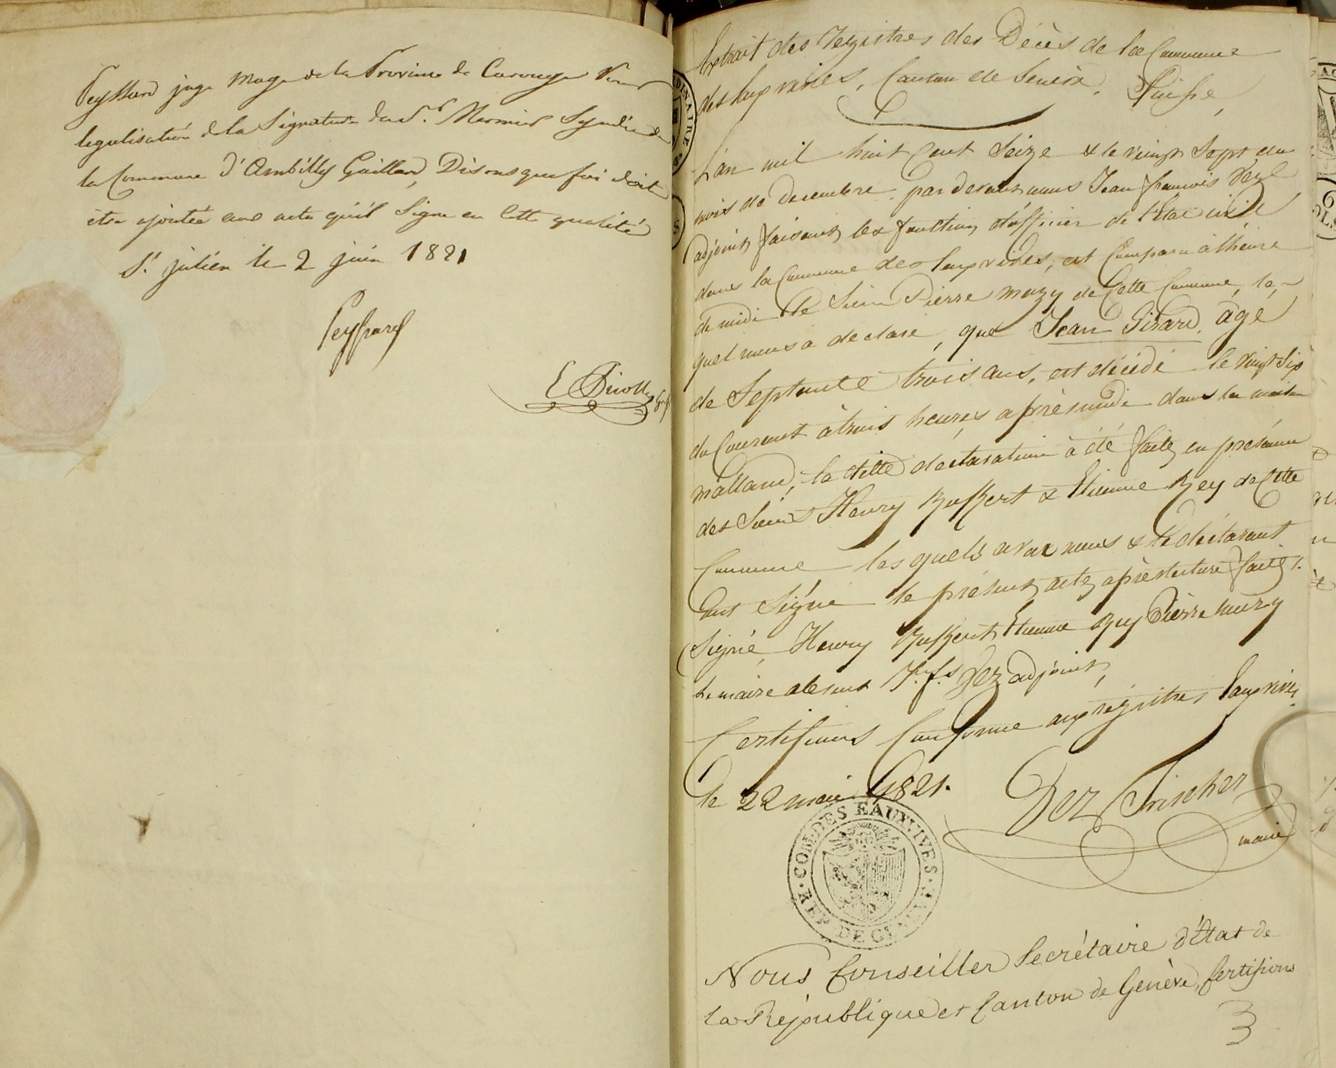 Peyssard juge Mage de la Province de Carouge Vu la
legalisation de la Signature du Sr. Mermier Syndic de
la Commune d'Ambilly Gaillard, Disons que foi doit
être ajoutée aux actes qu'il Signe en cette qualité
St. julien le 2 juin 1821
Peyssard
Extrait des registres des Décès de la Commune
des Eauxvives, Canton de Genève, Suisse,
L'an mil huit Cent Seize & le vingt Sept du
mois de decembre, par devant nous Jean françois Dez
adjoint faisant les fonctions d'officier de l'Etat civil
dans la Commune des Eauxvives, est Comparu à l'heure
de midi le Sieur Pierre mazy de Cette Commune, le-
quel nous a declaré, que Jean Girard, âgé
de Septante trois ans, est décédé le vingt Six
du Courant à trois heures après midi dans la maison
mallard, la ditte déclaration à été faite en présence
des Sieurs Henry Ruffert & Etienne Rey de Cette
Commune lesquels avec nous & le déclarant
ont Signé le présent acte après lecture faite.
Signé, Henry Ruffert, Etienne Rey Pierre mazy
Le maire absent J. fs. Dez adjoint,
Certifions Conforme aux régistres Eauxvives
le 22 mai 1821.
Dez Trischer
maire
COM. DES EAUX. VIVES
REP. DE GENEVE
Nous Conseiller Secrétaire d'État de
la République et Canton de Genève, Certifions
3